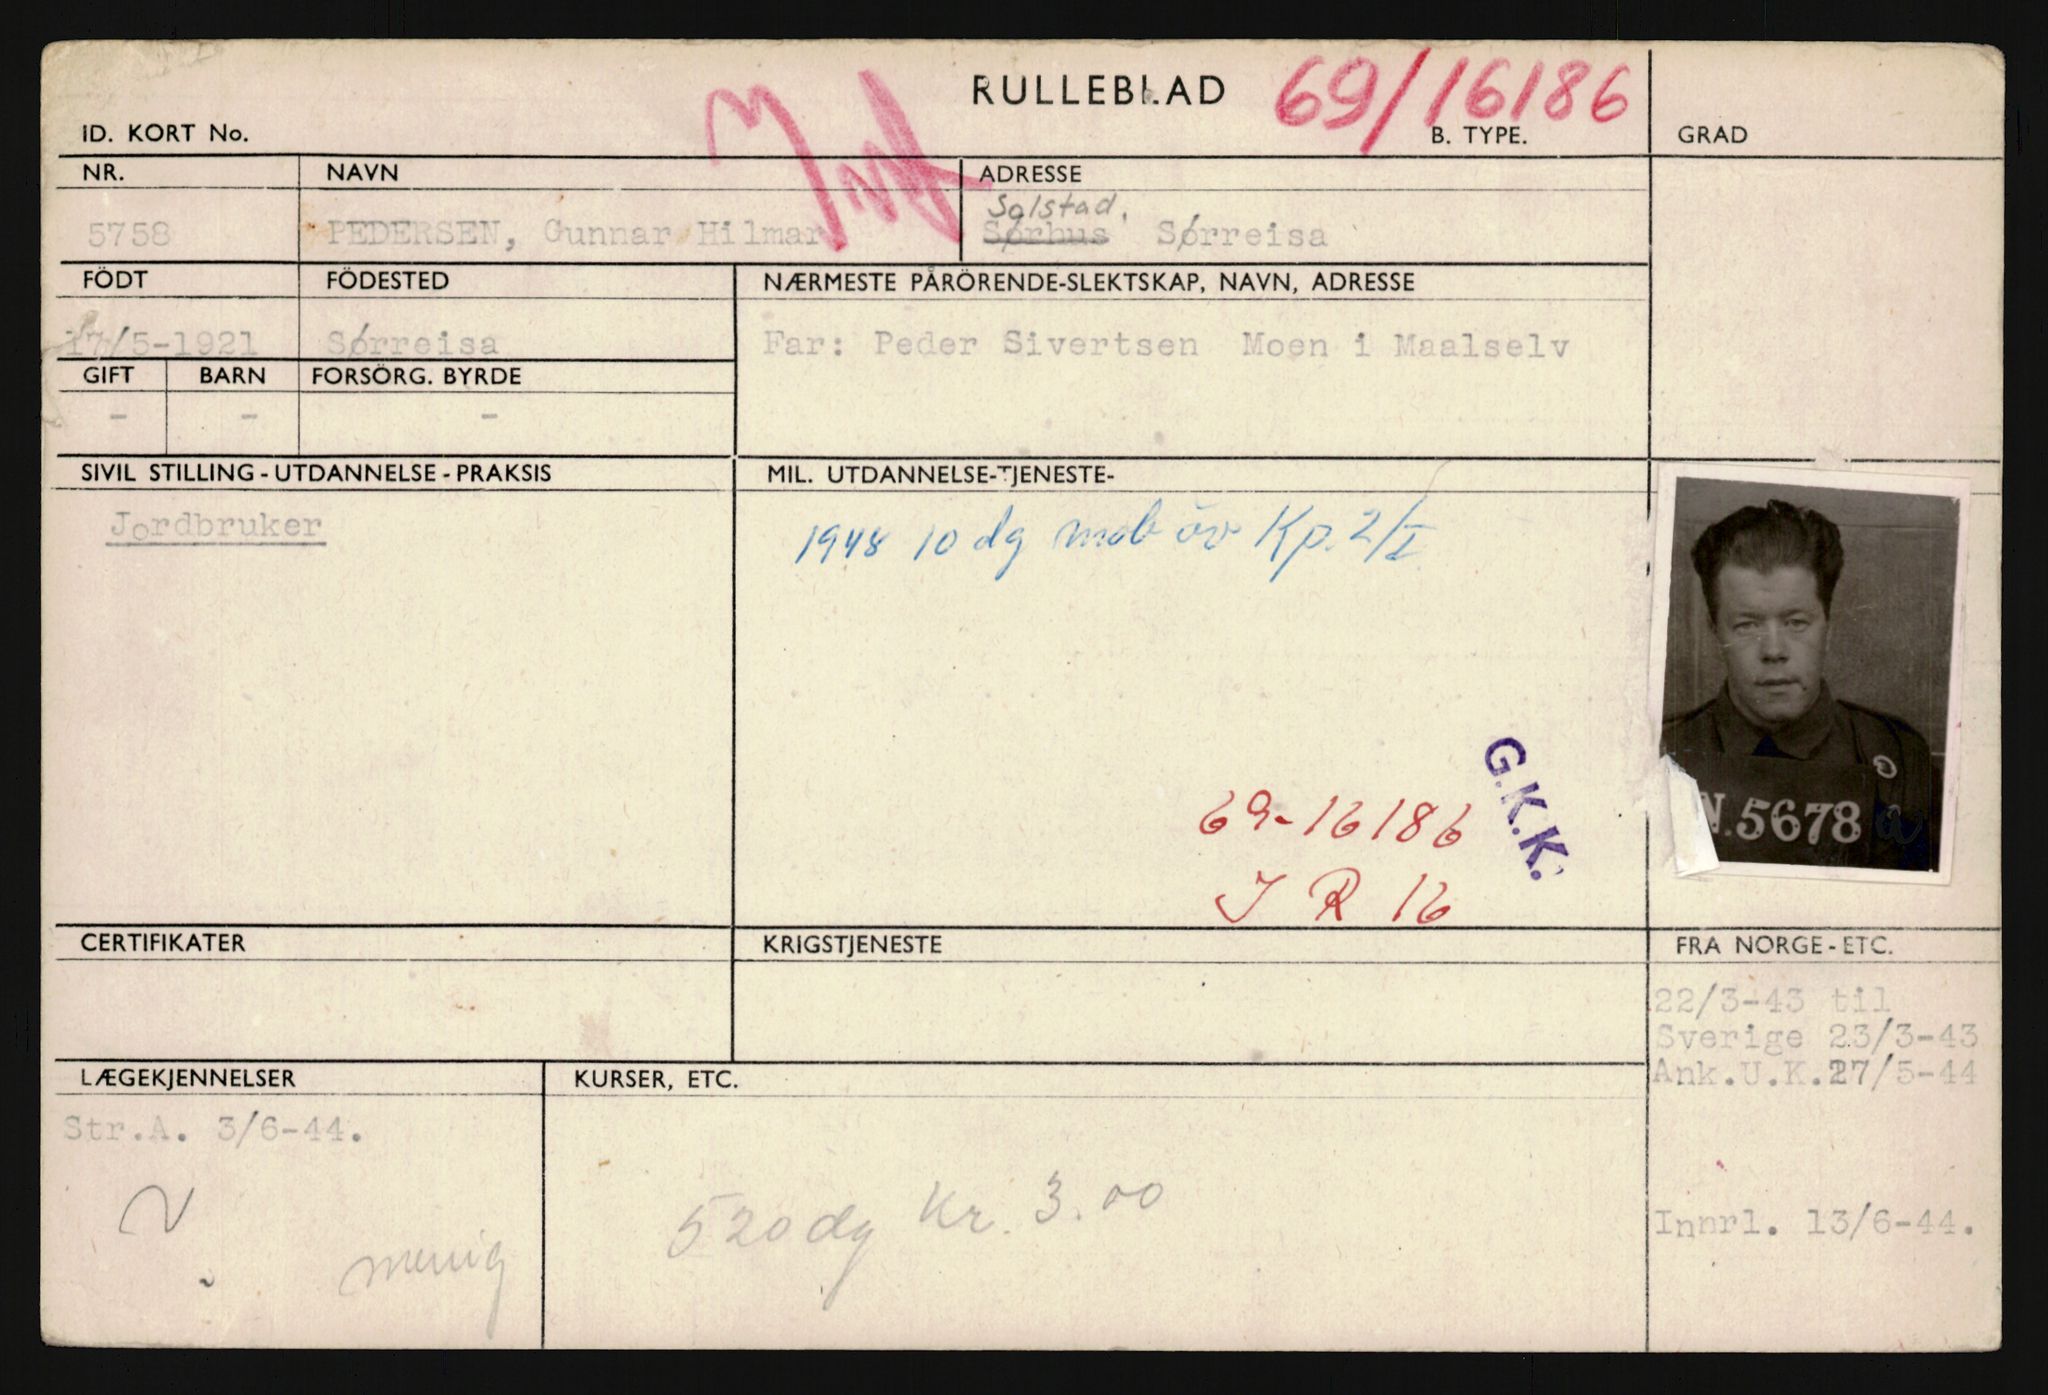 RULLEBLAD 69/16186
ID. KORT No. Inf B. TYPE. GRAD
NR. NAVN ADRESSE
Solstad,
5758 PEDERSEN, Gunnar Hilmar Sørhus Sørreisa
FÖDT FÖDESTED NÆRMESTE PÅRÖRENDE-SLEKTSKAP, NAVN, ADRESSE
17/5-1921 Sørreisa Far: Peder Sivertsen Moen i Maalselv
GIFT BARN FORSÖRG. BYRDE
- - -
SIVIL STILLING-UTDANNELSE-PRAKSIS MIL. UTDANNELSE-TJENESTE-
Jordbruker 1948 10 dg mob öv Kp. 2/I
G.K.K.
69-16186
N.5678 a
I R 16
CERTIFIKATER KRIGSTJENESTE FRA NORGE-ETC.
22/3-43 til
Sverige 23/3-43
Ank.U.K.27/5-44
LÆGEKJENNELSER KURSER, ETC.
Str.A. 3/6-44.
520 dg Kr. 3.00
Innrl. 13/6-44.
menig